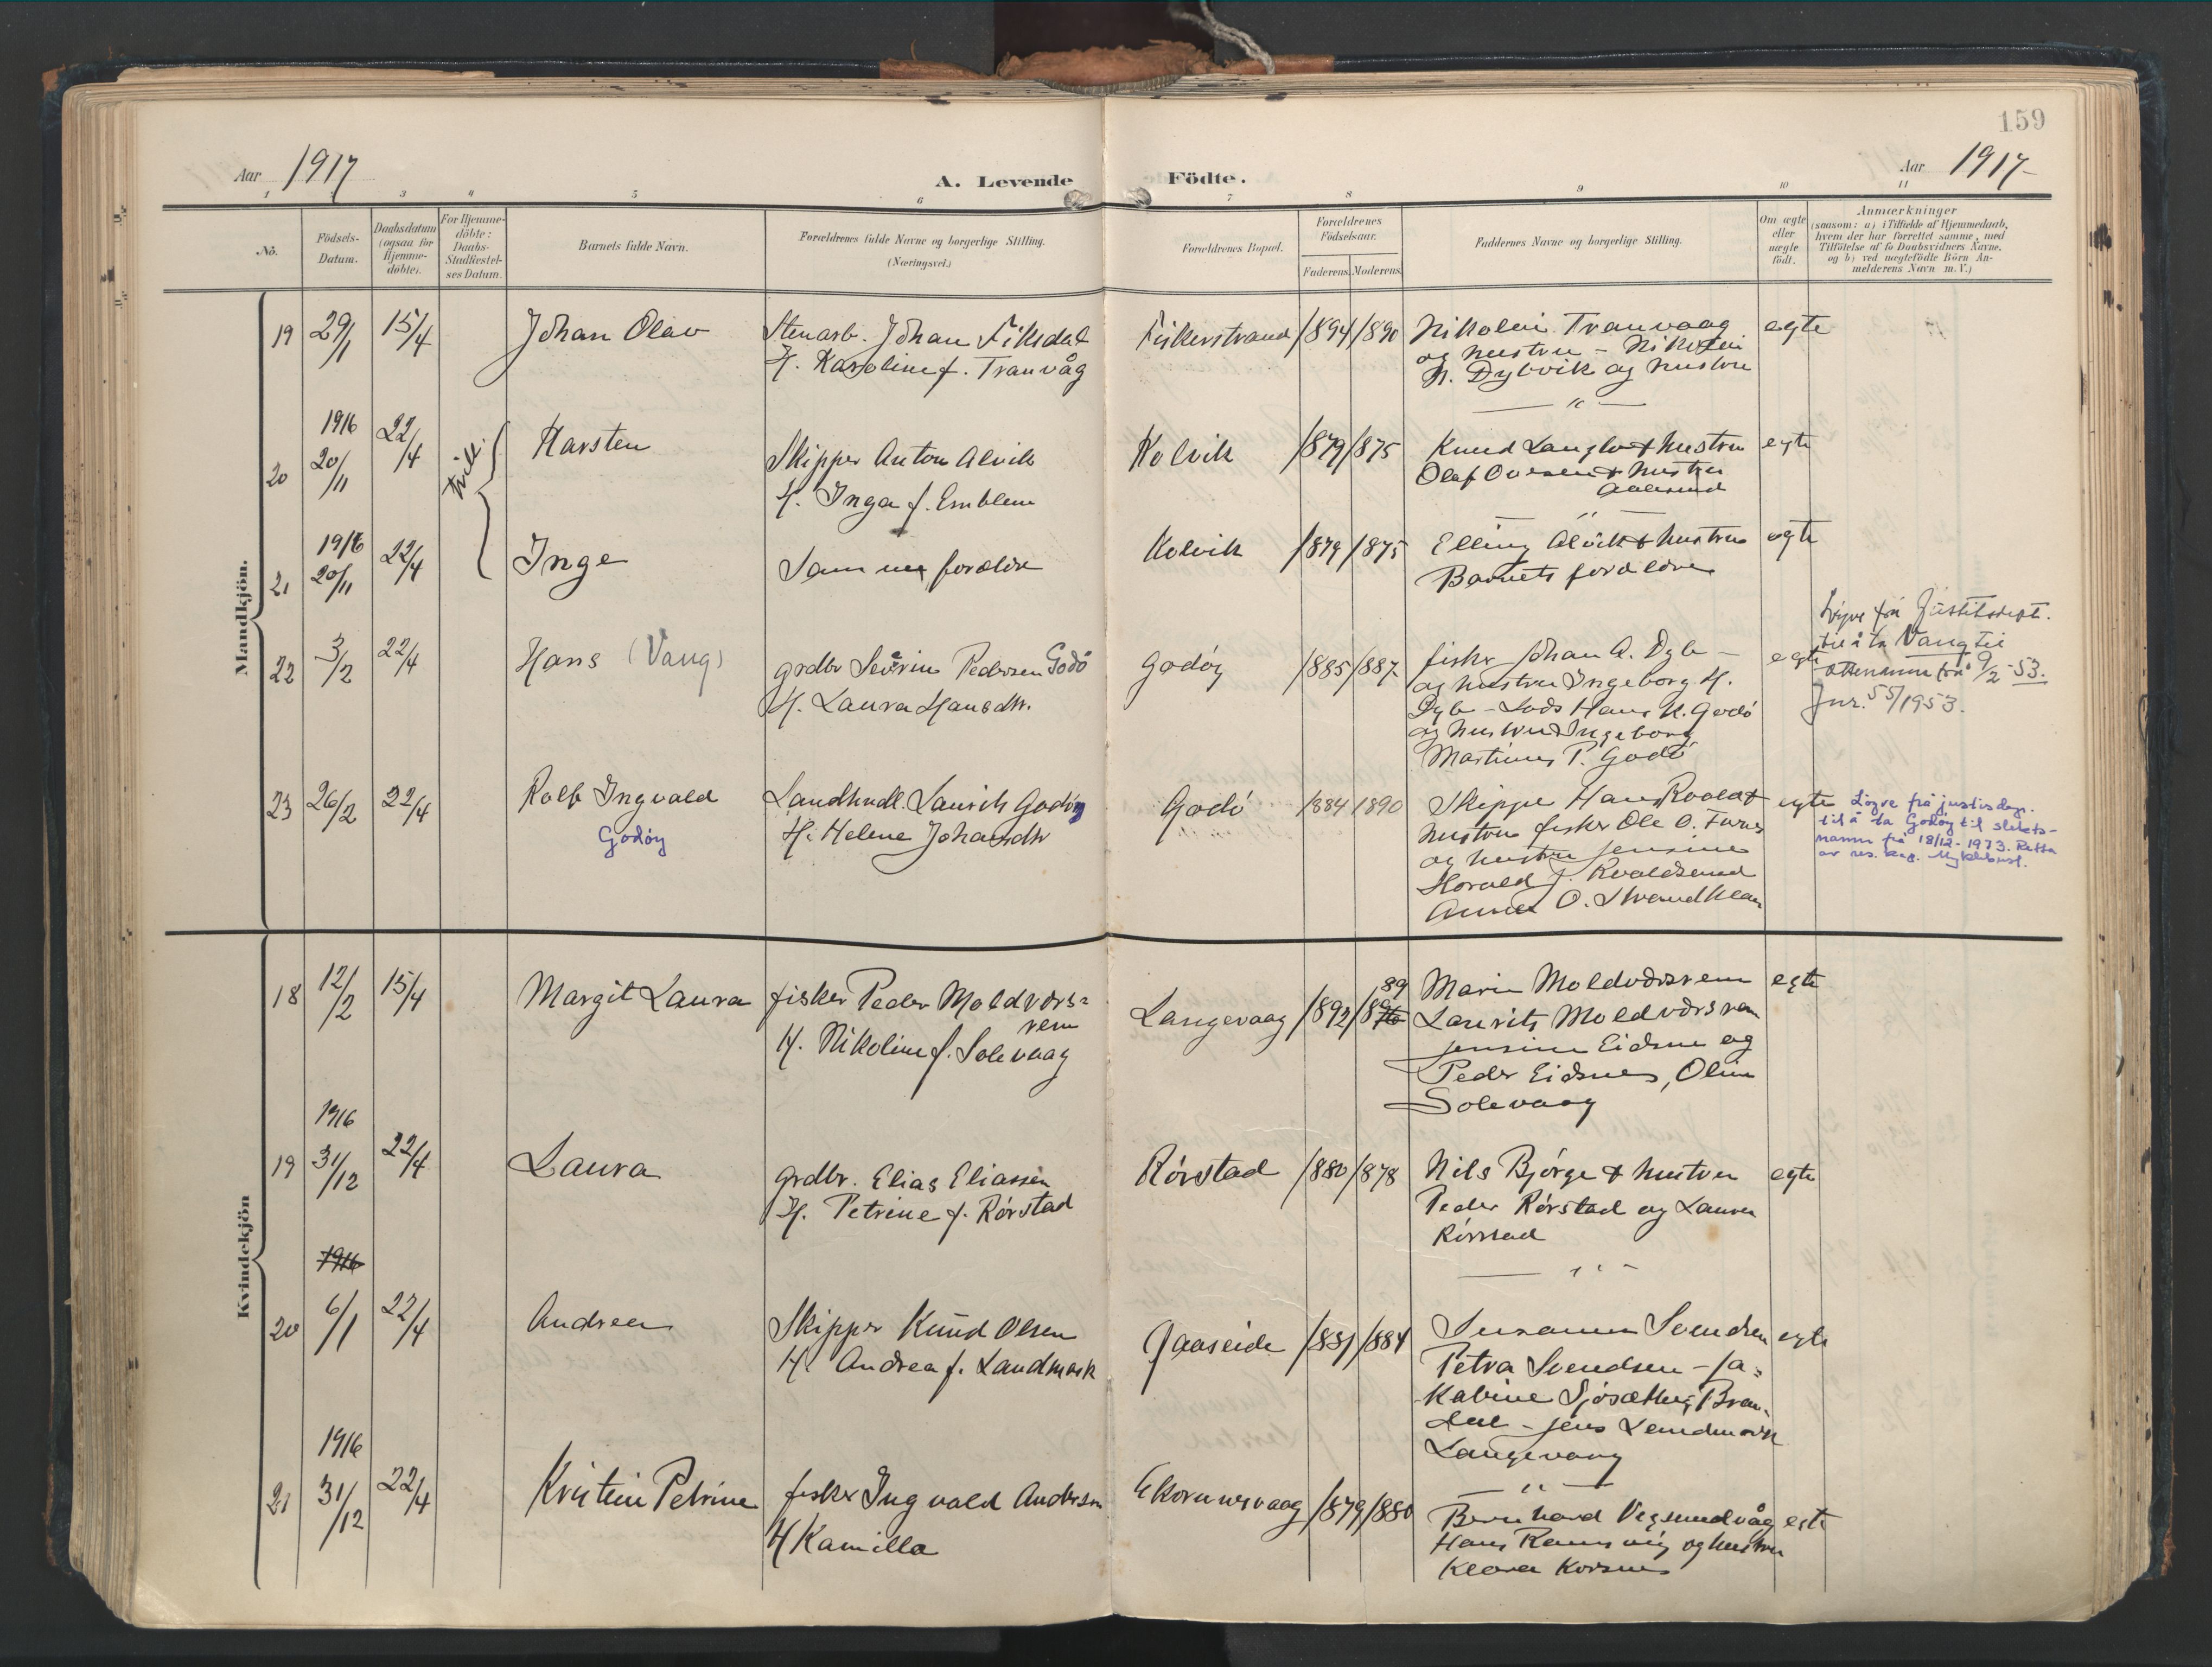 159
Aar 1917
A. Levende Födte.
Aar 1917
1 2 3 4 5 6 7 8 9 10 11
No.
Födsels-
Datum.
Daabsdatum
(ogsaa for
Hjemme-
döbte).
For Hjemme-
döbte:
Daabs-
Stadfæstel-
ses Datum.
Barnets fulde Navn.
Forældrenes fulde Navne og borgerlige Stilling.
(Næringsvei.)
Forældrenes Bopæl.
Forældrenes
Födselsaar.
Faderens. Moderens.
Faddernes Navne og borgerlige Stilling.
Om ægte
eller
uægte
födt.
Anmærkninger
(saasom: a) i Tilfælde af Hjemmedaab,
hvem der har forrettet samme, med
Tilföielse af to Daabsvidners Navne,
og b) ved uægtefödte Börn An-
melderens Navn m. V.)
Mandkjön.
19 29/1 15/4 Johan Olav
Stenarb. Johan Fiksdal
H. Karoline f. Tranvåg
Fiskerstrand 1894 1890
Nikolai Tranvaag
og hustru - Nikolai
N. Dybvik og hustru
egte
20 1916 20/11 22/4 tvill. Karsten
Skipper Anton Alvik
H. Inga f. Emblem
Kolvik 1879 1875
Knud Langlo & hustru
Olaf & hustru
Aalesund
egte
21 1916 20/11 22/4 Inge
Samme foreldre
Kolvik 1879 1875
Elling Alvik & hustru
Barnets foreldre
egte
22 3/2 22/4 Hans (Vang)
grdbr Severin Pedersen Godö
H. Laura Hansdtr.
Godöy 1885 1887
fisker Johan A. Dyb -
og hustru Ingeborg H.
Dyb - Lods Hans K. Godö
og hustru Ingeborg
Martinus P. Godö
egte
Løyve frå Justitsdept.
til å ta Vang til
ættenamn frå 9/2-53.
Jnr. 55/1953.
23 26/2 22/4 Rolf Ingvald
Godøy
Landhndl. Laurits Godöy
H. Helene Johansdtr
Godö 1884 1890
Skipper Hans Roald &
hustru fisker Ole O. Furnes
og hustru Jensine
Harald J. Roaldsund
Anna O. Strand
egte
Løyve frå justisdep.
til å ta Godøy til slekts-
namn frå 18/12-1973. Retta
av res. kap. Myklebust.
Kvindekjön
18 12/2 15/4 Margit Laura
fisker Peder Moldværs-
rem
H. Nikoline f. Solevaag
Langevaag 1892 1896 89
Marie Moldværsrem
Laurits Moldværsrem
Jensine Eidsnes og
Peder Eidsnes, Oline
Solevaag
egte
19 1916 31/12 22/4 Laura
grdbr. Elias Eliassen
H. Petrine f. Rörstad
Rörstad 1880 1878
Nils Bjørge & hustru
Peder Rörstad og Laura
Rörstad
egte
20 1916 6/1 22/4 Andrea
Skipper Knud Olsen
H. Andrea f. Landmark
Gaaseide 1881 1884
Susanne Svendsen
Petra Svendsen - Ja-
kobine Sjösæther, Bran-
dal - Jens Landmark
Langevaag
egte
21 1916 31/12 22/4 Kristine Petrine
fisker Ingvald Andersen
H Kamilla
Ekornesvaag 1879 1880
Bernhard Vegsundvåg
Hans Ramsvig og hustru
Klara Korsnes
egte